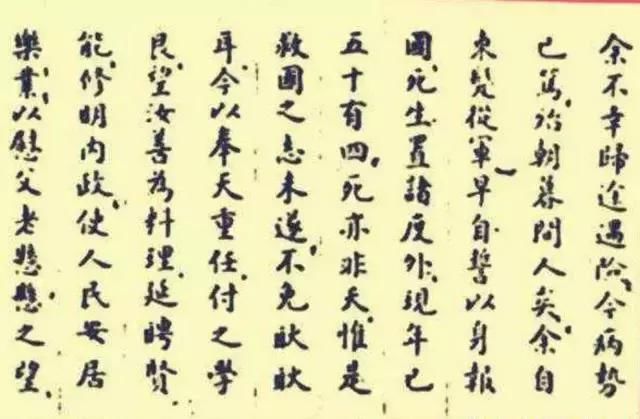 余不幸歸途遇險,今病勢
已篤,殆朝暮間人矣,余自
束髮從軍,早自誓以身報
國,死生置諸度外,現年已
五十有四,死亦非夭,惟是
救國之志未遂,不免耿耿
耳,今以奉天重任,付之學
良,望汝善為料理,延聘賢
能,修明內政,使人民安居
樂業,以慰父老懸懸之望.